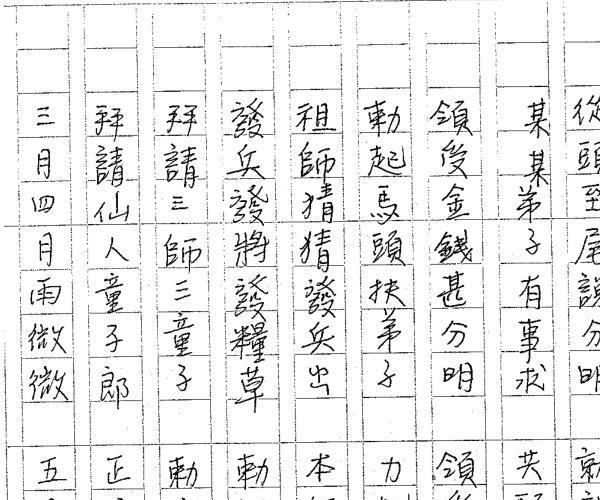 從頭至尾說分明 就
某某弟子有事求 共
領後金錢甚分明 領
勅起馬頭扶弟子 力
祖師猜猜發兵出 本
發兵發將發糧草 勅
拜請三師三童子 勅
拜請仙人童子郎 正
三月四月雨微微 五